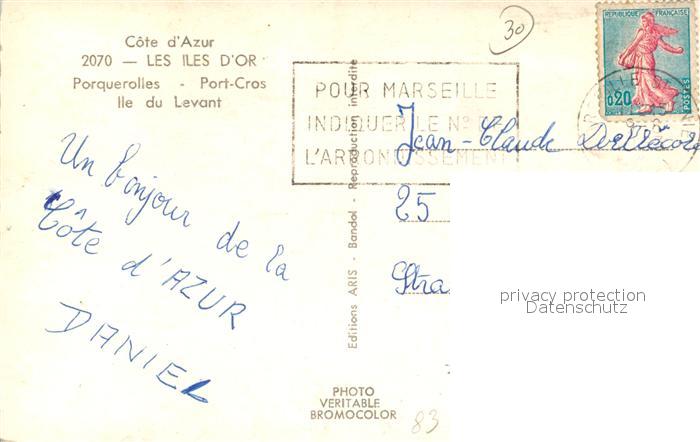 Côte d'Azur
2070 — LES ILES D'OR
Porquerolles - Port-Cros
Ile du Levant
30
RÉPUBLIQUE FRANÇAISE
0,20
POSTES
POUR MARSEILLE
INDIQUER LE N°
L'ARRONDISSEMENT
Un bonjour de la
Côte d'AZUR
DANIEL
Editions ARIS - Bandol - Reproduction interdite
Jean-Claude
25
Stra
privacy protection
Datenschutz
PHOTO
VERITABLE
BROMOCOLOR
83